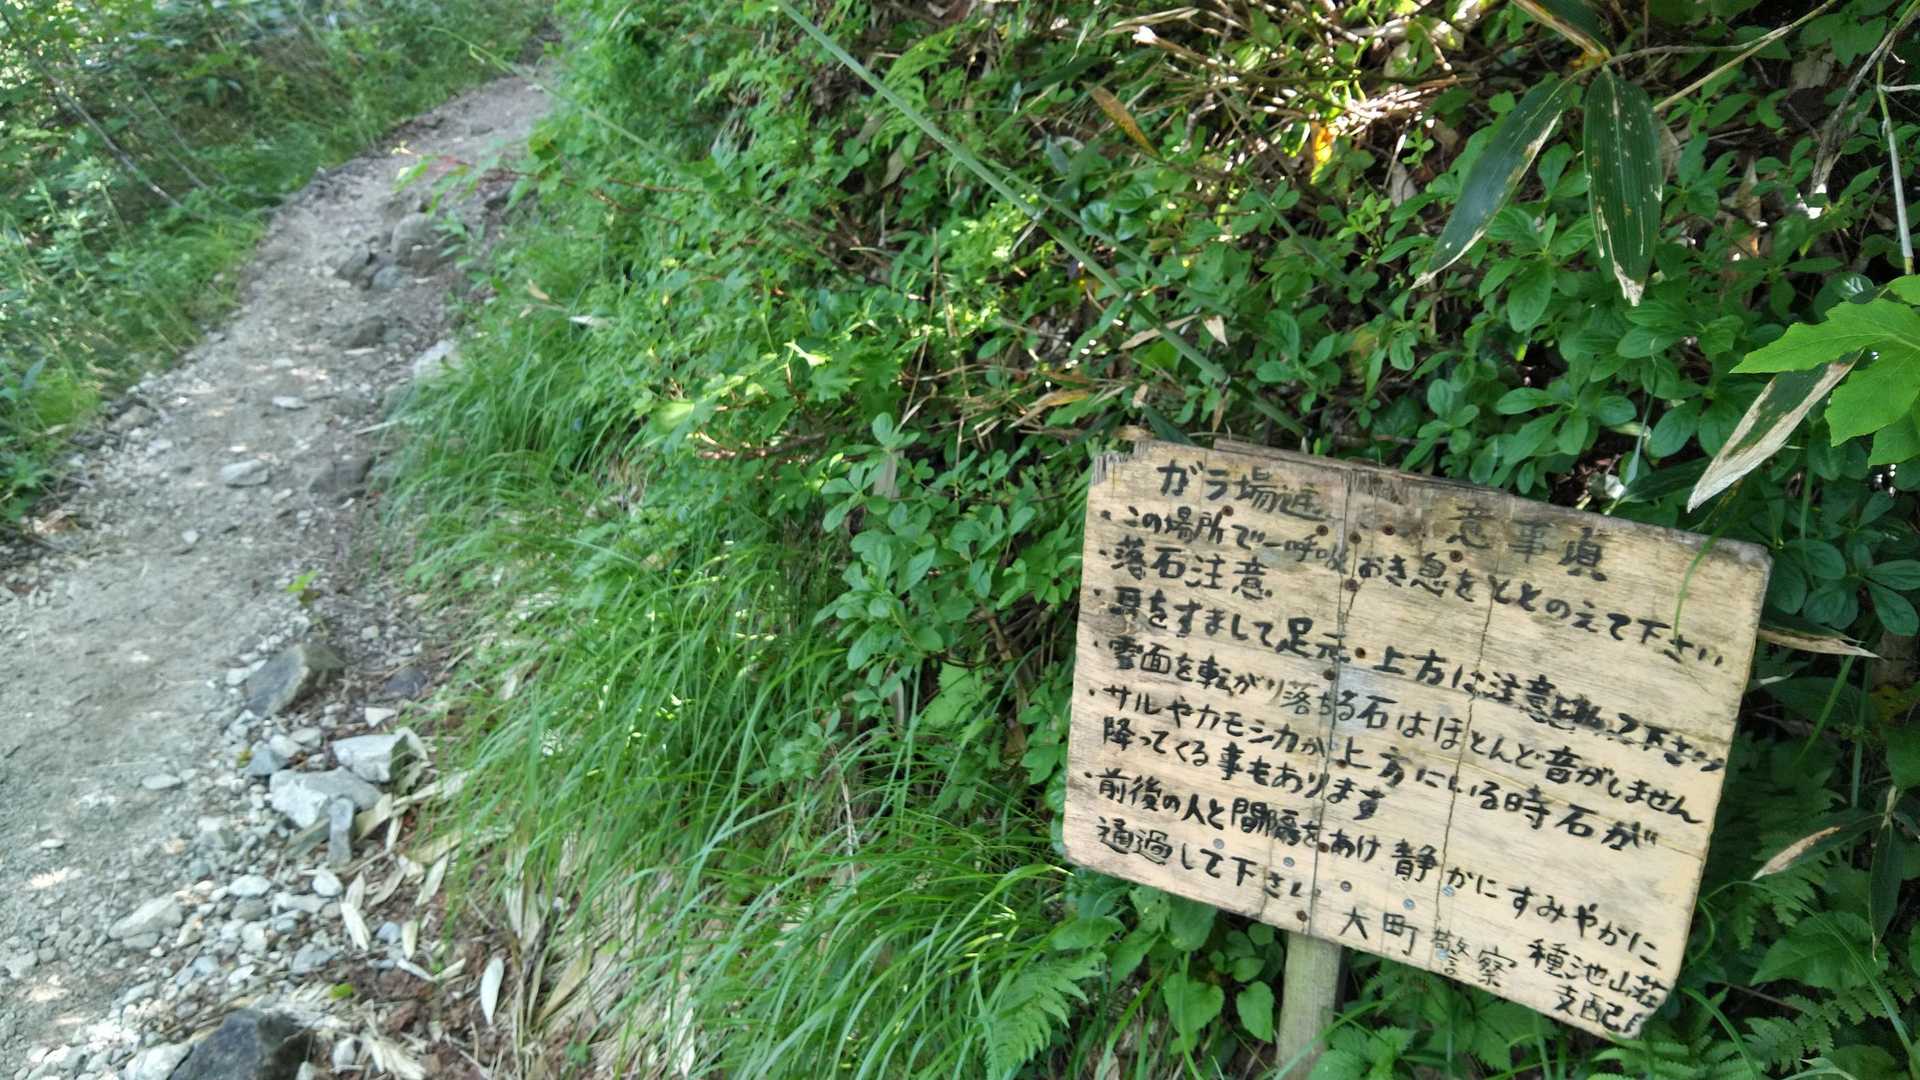 ガラ場通 意事項
・この場所で一呼吸おき息をととのえて下さい
・落石注意
・耳をすまして足元、上方に注意 下さい
・雪面を転がり落ちる石はほとんど音がしません
・サルやカモシカが上方にいる時石が
降ってくる事もあります
・前後の人と間隔をあけ静かにすみやかに
通過して下さい
大町警察 種池山荘
支配